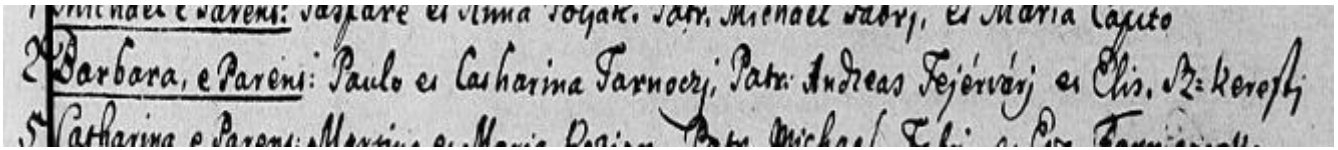 Michael e Parens: Caspare et Anna Poljak. Patr. Michael Fabrj, et Maria Caputo
2 Barbara, e Parens: Paulo et Catharina Tarnoczj, Patr. Andreas Fejérvárj et Elis. Sz: keresztj
5 Catharina e Parens: Martino et Maria Patr. Michael et Eva